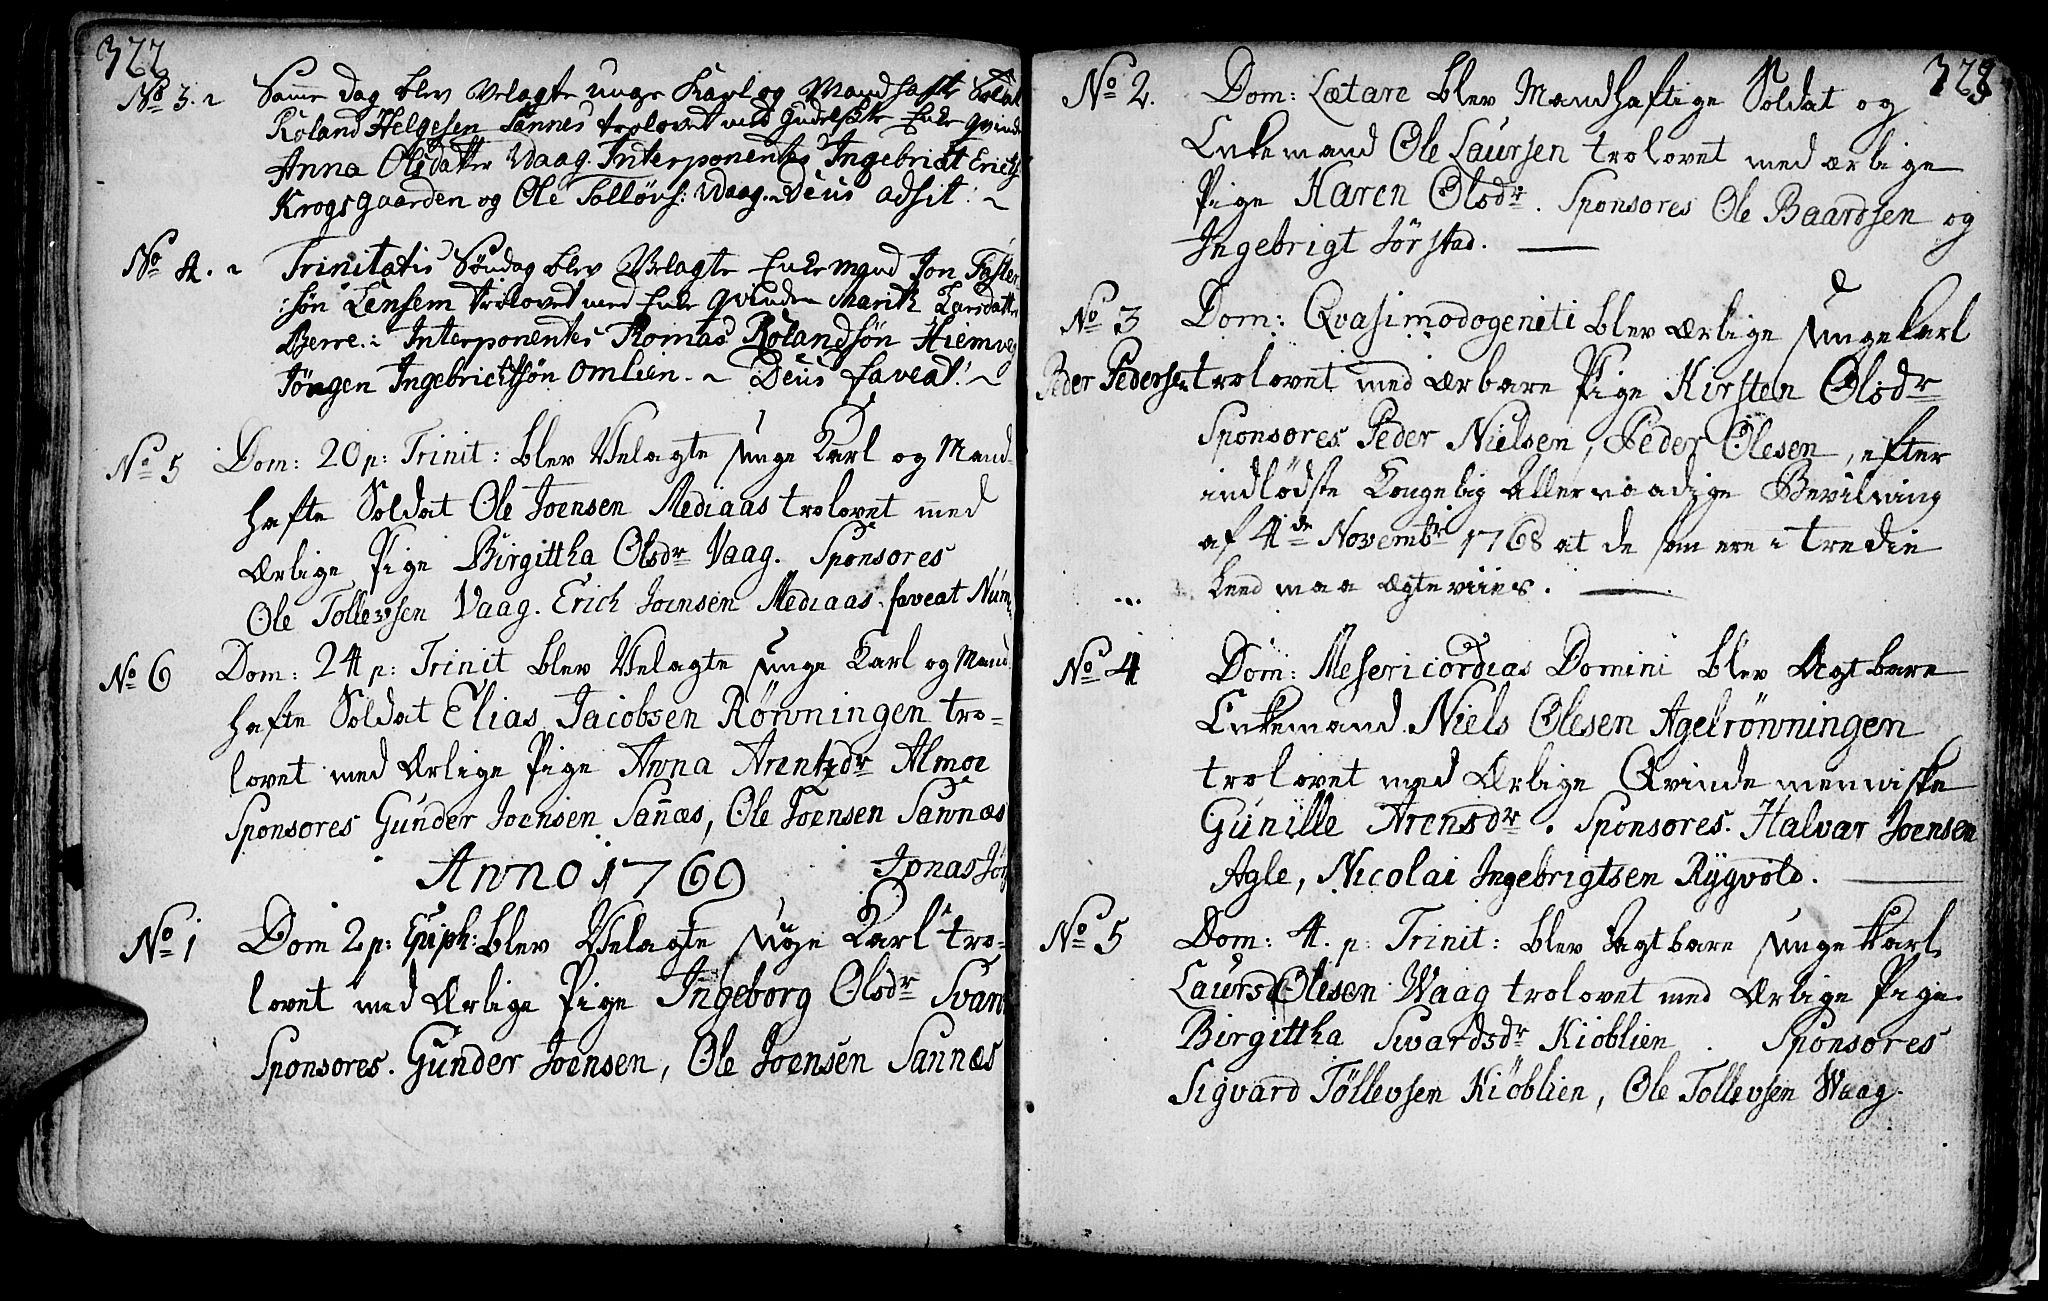 322
No 3. ~ Samme dag blev Velagte unge Karl og Mandhafte Soldat
Roland Helgesen Sannes trolovet med Gudelskte Enke Qvinde
Anna Olsdatter Vaag. Interponentes Ingebrict Erichs:
Krogsgaarden og Ole Tollövs: Vaag. ~ Deus adsit. ~
No 4. ~ Trinitatis Söndag blev Velagte Enkemand Jon Faster-
:sön Lensem trolovet med Enke Qvinden Marith Larsdatter
Berre. : Interponentes Tomas Rolandsön Hiemveg
Jörgen Ingebrichtsön Omlien. ~ Deus faveat! ~
No 5 Dom: 20 p: Trinit: blev Velagte unge Karl og Mand-
hafte Soldat Ole Joensen Mediaas trolovet med
Ærlige Pige Birgittha Olsdr Vaag. Sponsores
Ole Tollevsen Vaag. Erich Joensen Mediaas. faveat Num:
No 6 Dom: 24 p: Trinit blev Velagte unge Karl og Mand
hafte Soldat Elias Jacobsen Rönningen tro-
lovet med Ærlige Pige Anna Arentzdr Almoe
Sponsores Gunder Joensen Sañæs, Ole Joensen Sannæs
Anno 1769 Jonas Jör
No 1 Dom 2 p: Epiph: blev Velagte unge Karl tro-
lovet med Ærlige Pige Ingeborg Olsdr Svan
Sponsores. Gunder Joensen, Ole Joensen Sannæs
323
No 2. Dom: Lætare blev Mandhaftige Soldat og
Enkemand Ole Laursen trolovet med ærlige
Pige Karen Olsdr. Sponsores Ole Baardsen og
IngebrigtFörstad.
No 3 Dom: Qvasimodogeniti blev ærlige unge Karl
Peder Pedersen trolovet med ærbare Pige Kirsten Olsdr
Sponsores Peder Nielsen, Peder Olesen, efter
indlödste Kongelig allernaadige Bevilning
af 4de Novembr 1768 at de som ere i tredie
Leed maa ægtevies.
No 4 Dom: Mesericordias Domini blev Agtbare
Enkemand Niels Olesen Agelrönningen
trolovet med Ærlige Qvindemenniske
Gunille Arensdr. Sponsores. Halvar Joensen
Agle, Nicolai Ingebrigtsen Rygvold.
No 5 Dom: 4. p: Trinit: blev Agtbare unge Karl
Laurs Olesen Waag trolovet med Ærlige Pige
Birgittha Sivardsdr Kiöblien. Sponsores
Sigvard Töllevsen Kiöblien, Ole Tollevsen Waag.